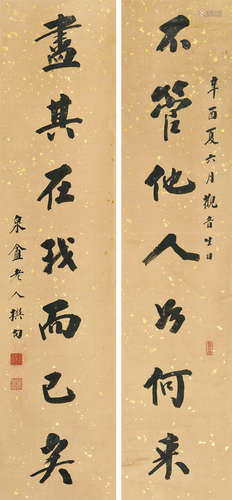 不管他人如何来
辛酉夏六月觀音生日
盡其在我而已矣
泉盦老人撰句